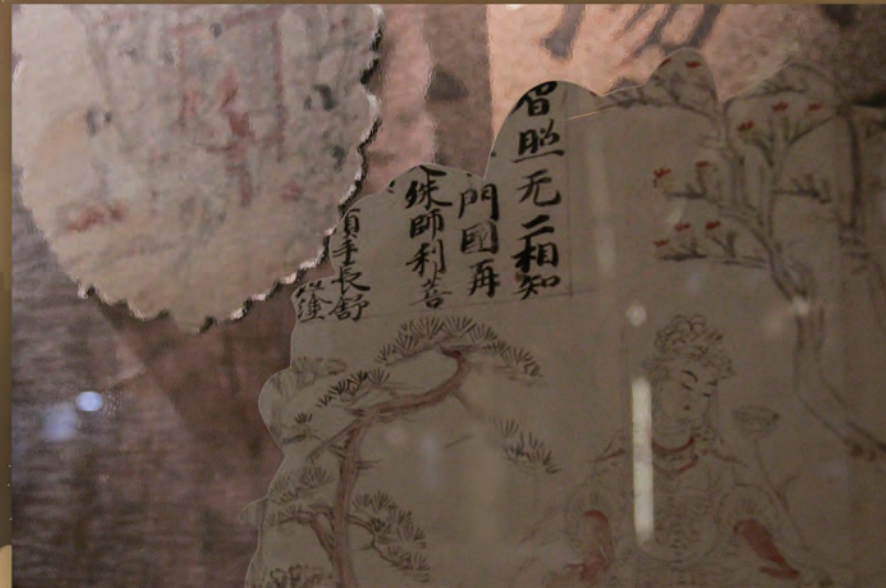 照无二相知
門國再
殊師利菩
手長舒